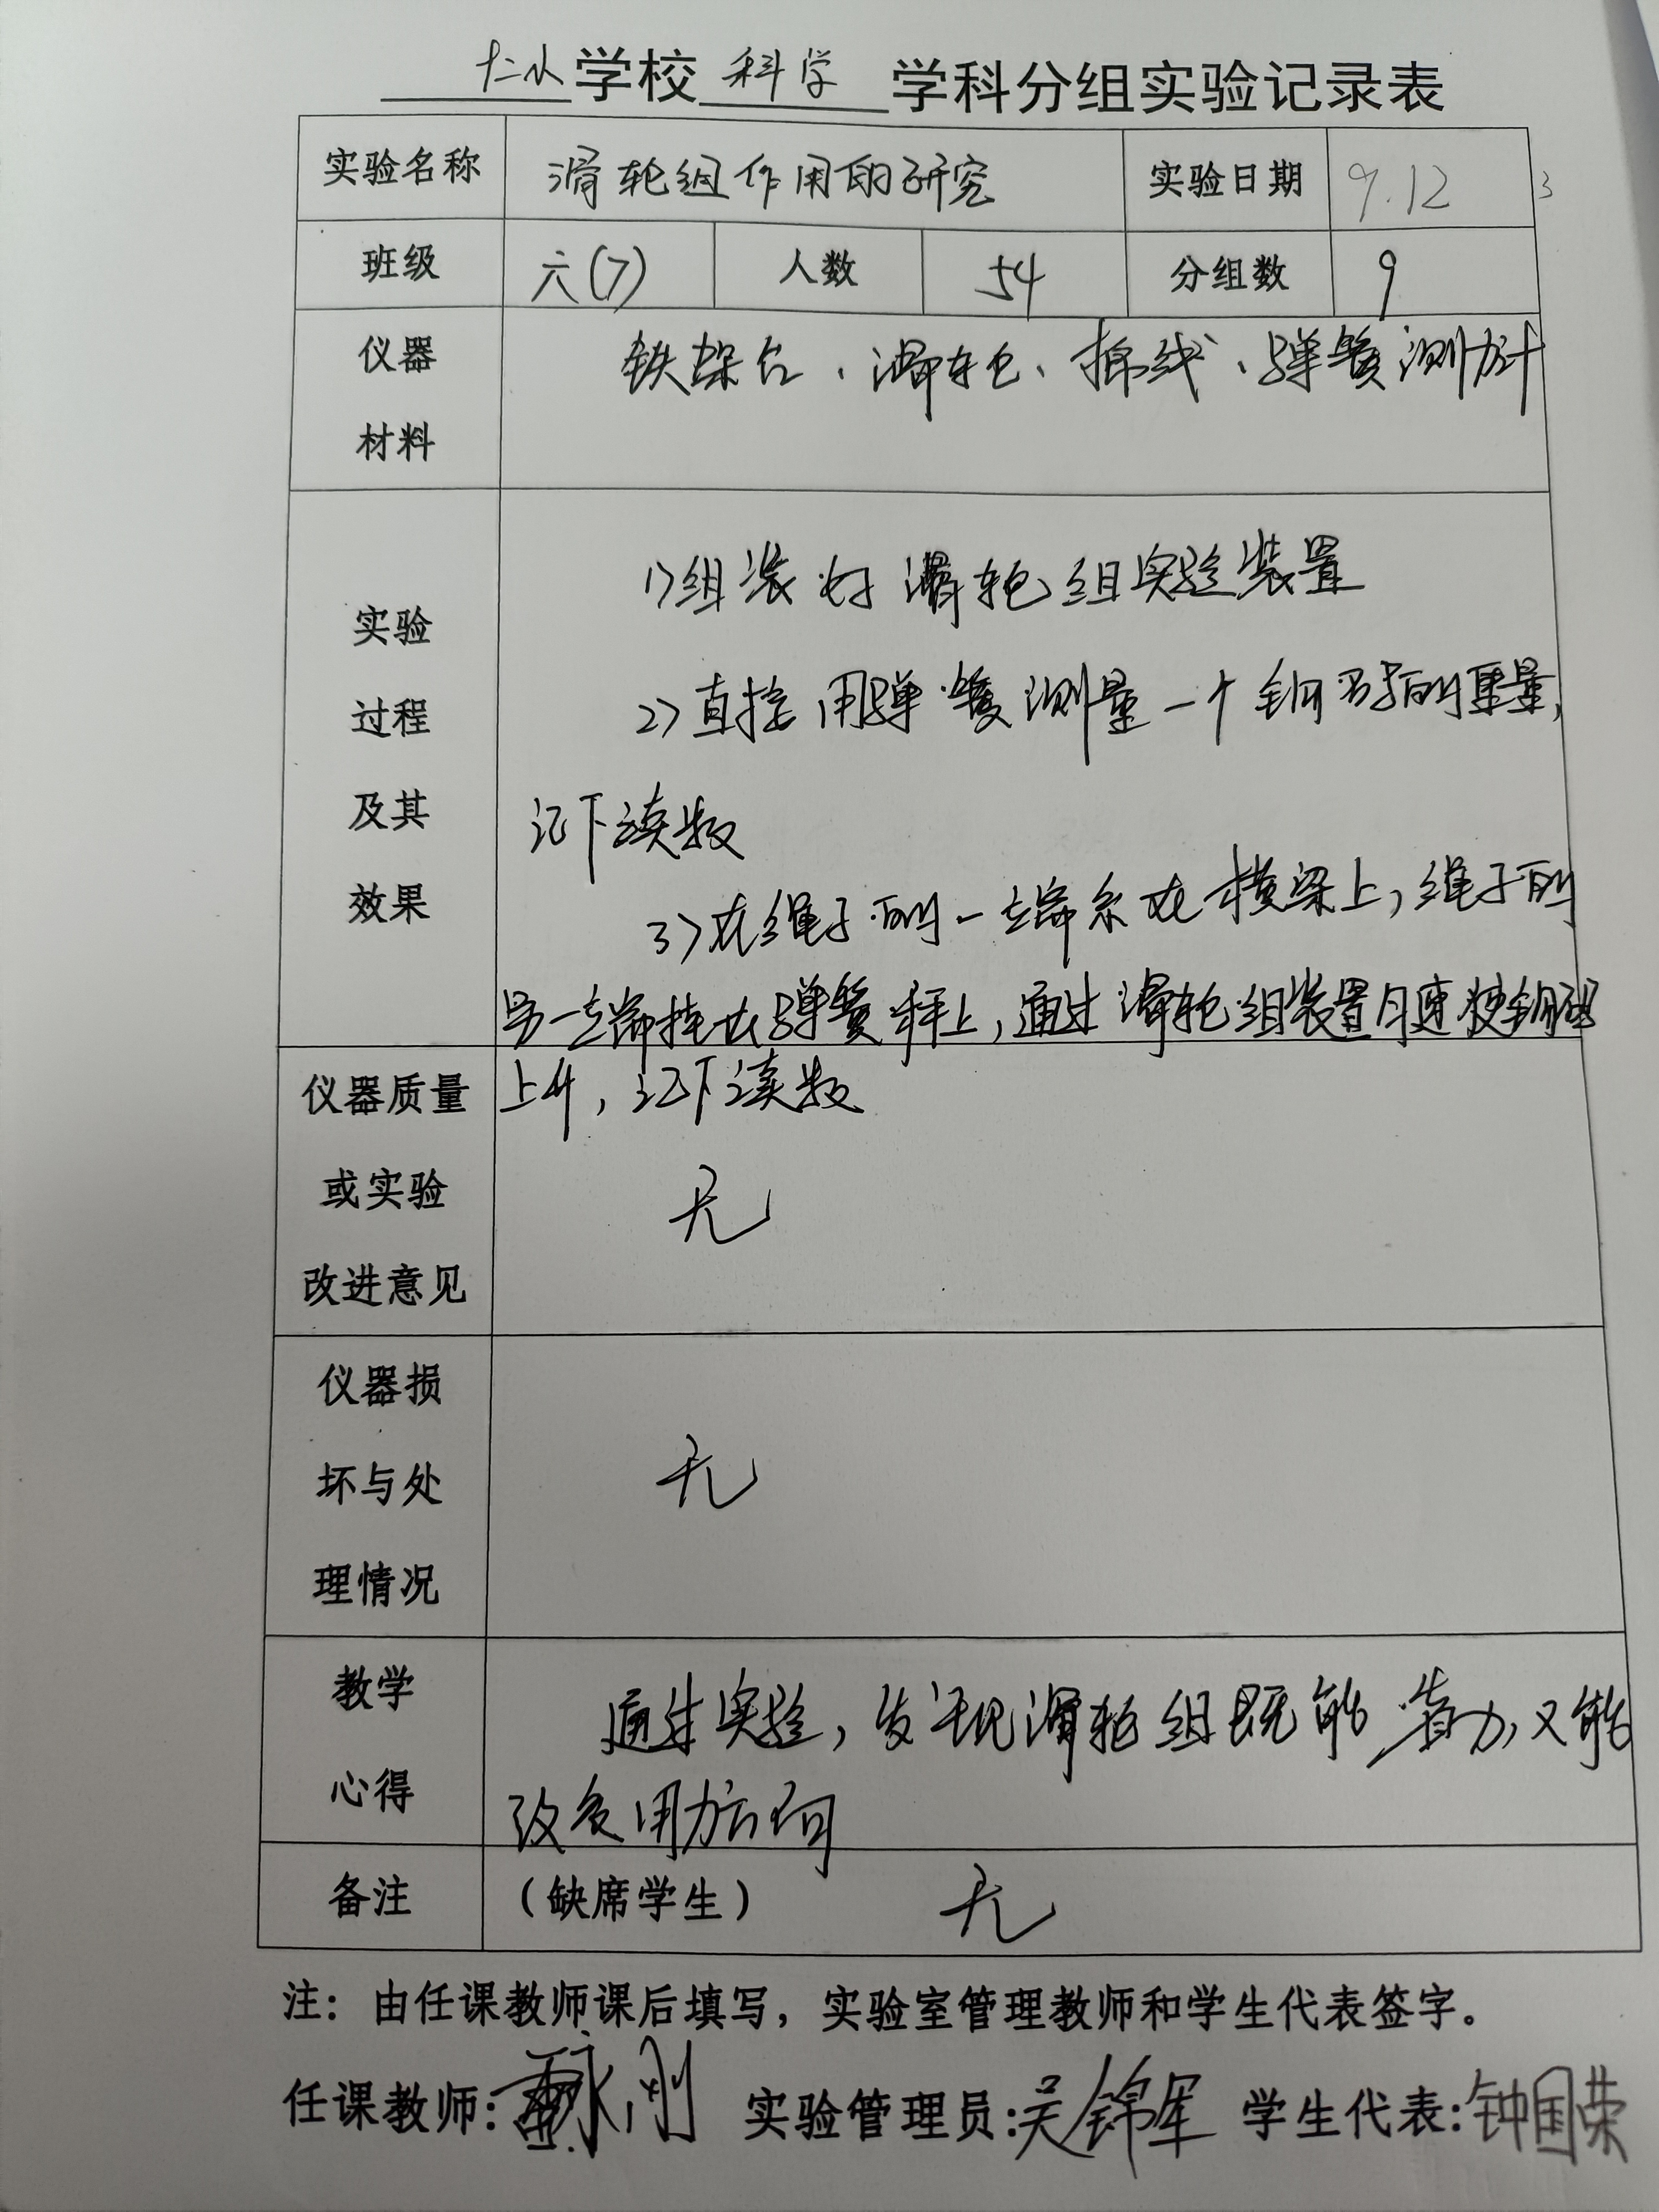 十二小学校 科学 学科分组实验记录表
实验名称 滑轮组作用的研究 实验日期 9.12
3
班级 六(7) 人数 54 分组数 9
仪器材料 铁架台、滑轮、棉线、弹簧测力计
实验过程及其效果
1)组装好滑轮组实验装置
2)直接用弹簧测量一个钩码的重量,
记下读数
3)在绳子的一端系在横梁上,绳子的
另一端挂在弹簧秤上,通过滑轮组装置匀速使钩码
上升,记下读数
仪器质量或实验改进意见 无
仪器损坏与处理情况 无
教学心得 通过实验,发现滑轮组既能省力,又能
改变用力方向
备注 (缺席学生) 无
注:由任课教师课后填写,实验室管理教师和学生代表签字。
任课教师: 永刚 实验管理员:吴锦军 学生代表:钟国荣